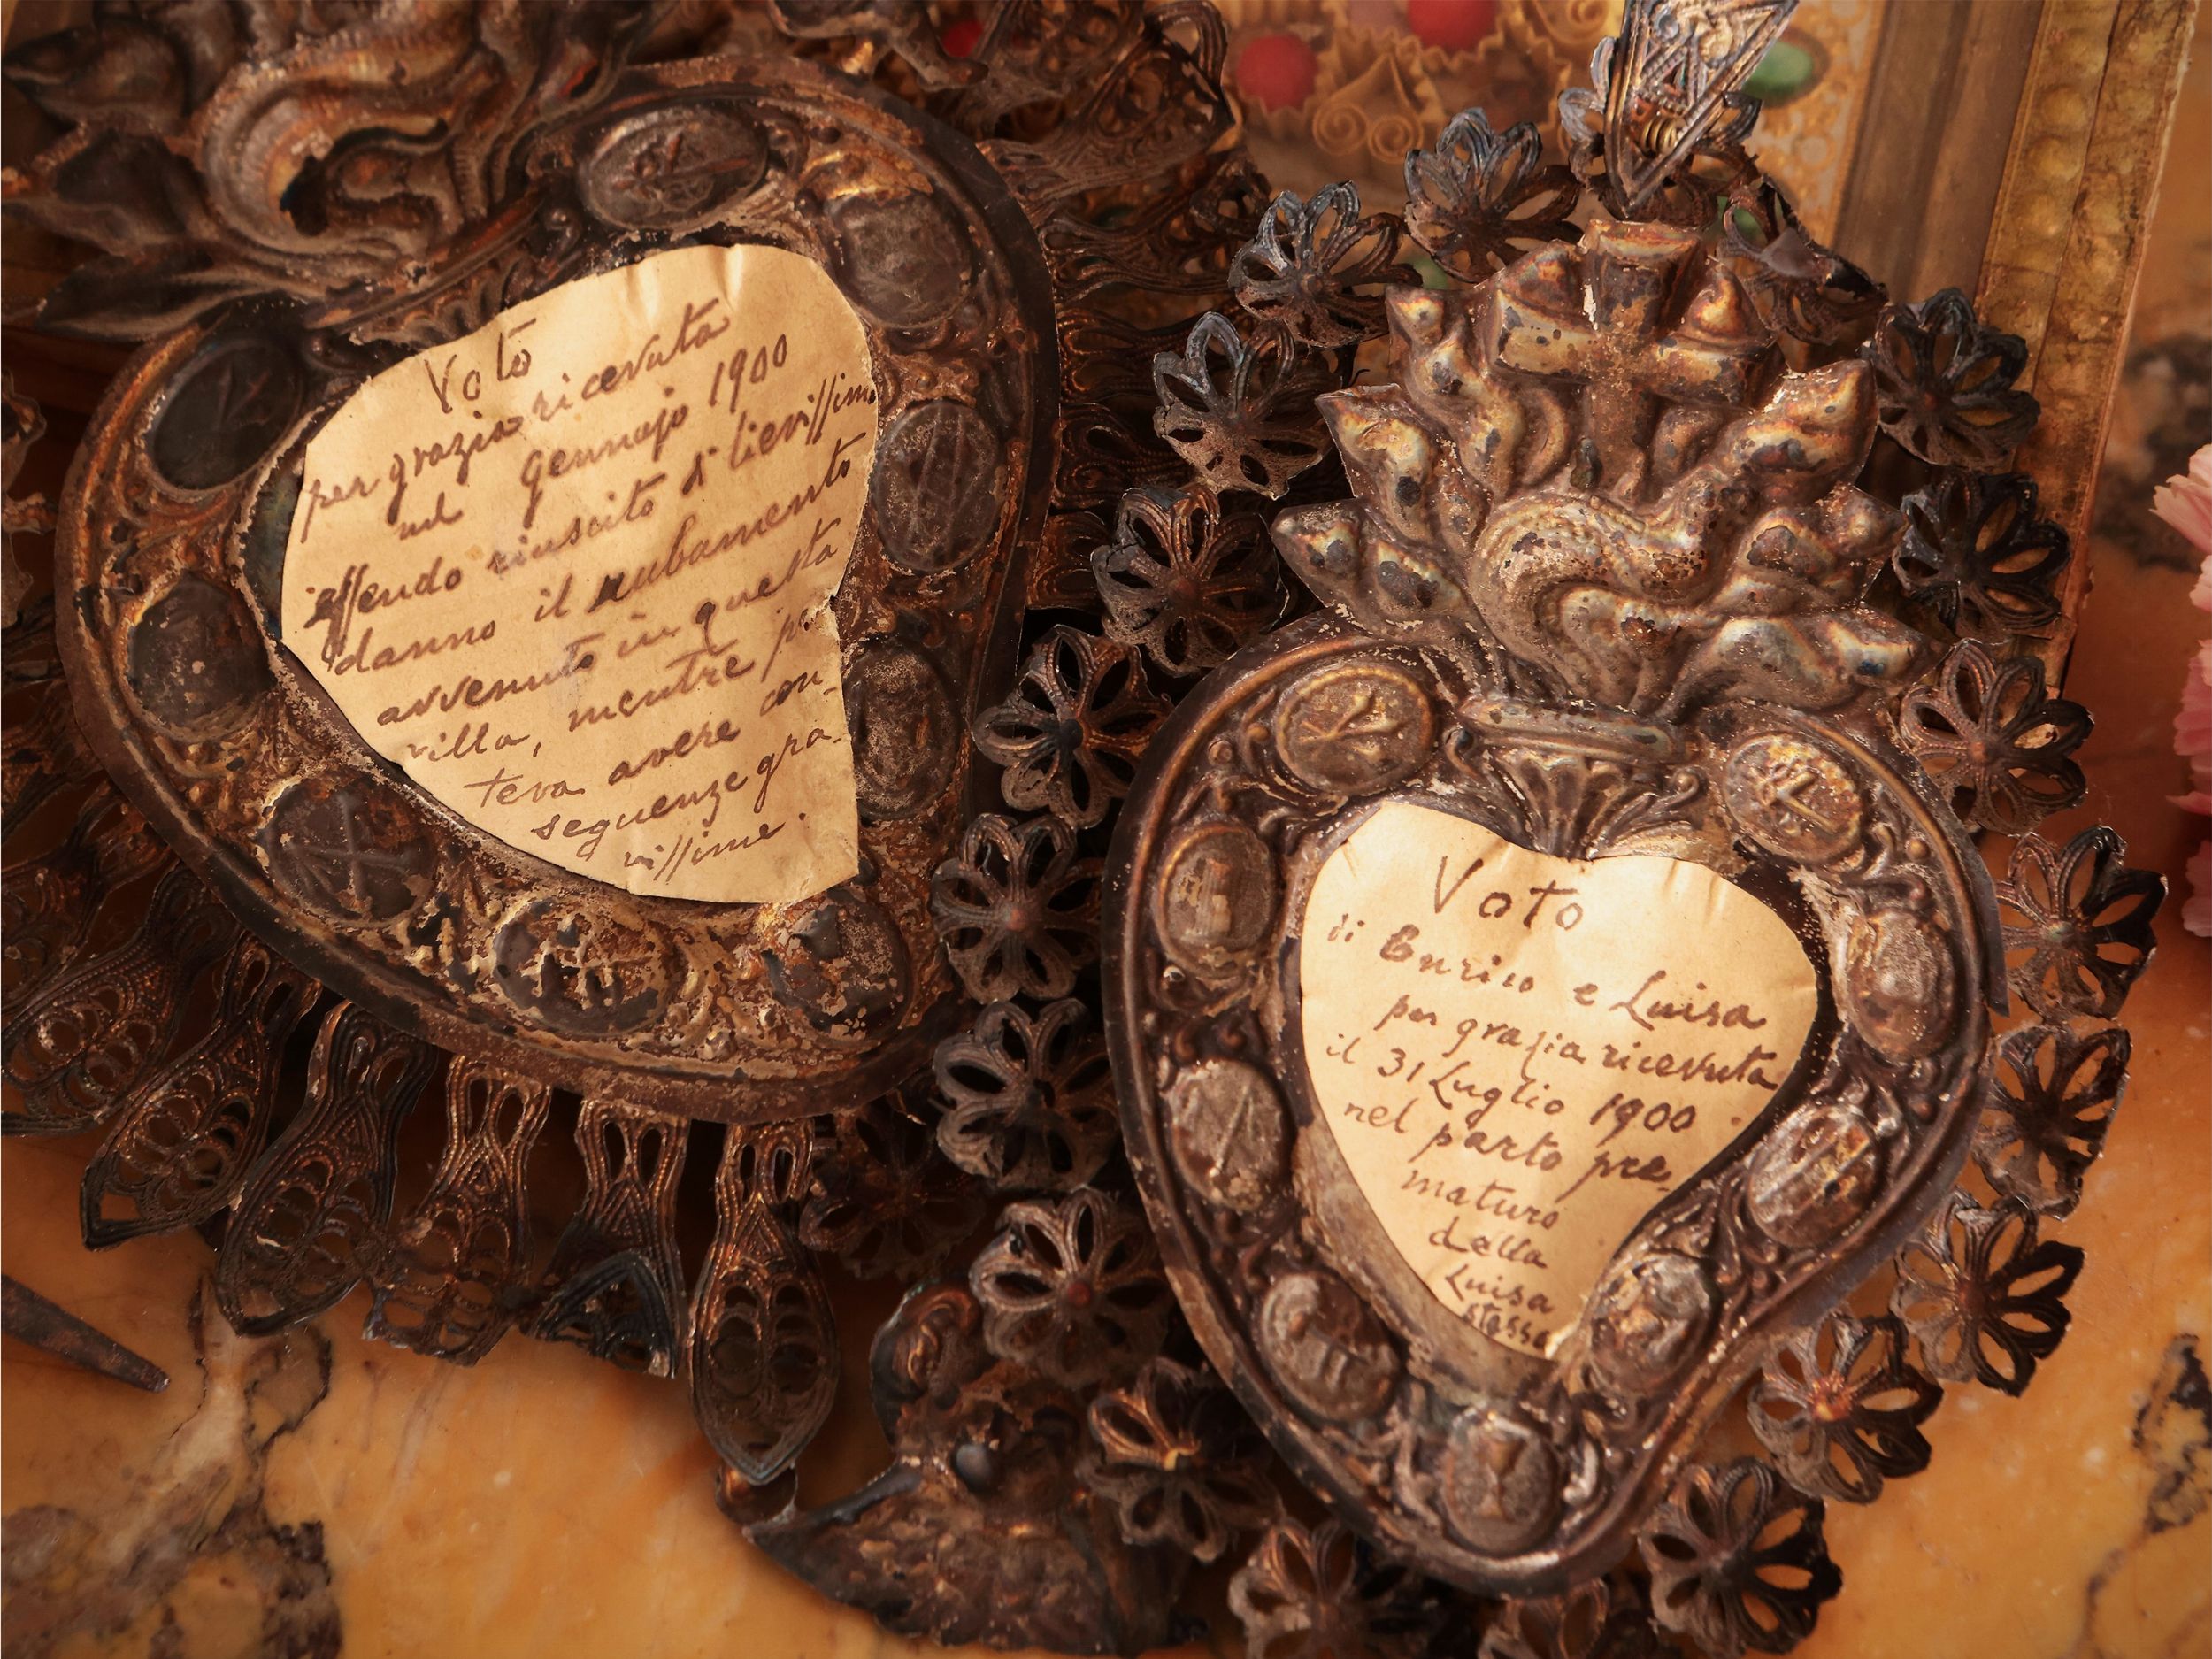 Voto
per grazia ricevuta
nel gennajo 1900
essendo riuscito di lievissimo
danno il rubamento
avvenuto in questa
villa, mentre po-
teva avere con-
seguenze gra-
vissime.
Voto
di Enrico e Luisa
per grazia ricevuta
il 31 Luglio 1900
nel parto pre-
maturo
della
Luisa
stessa